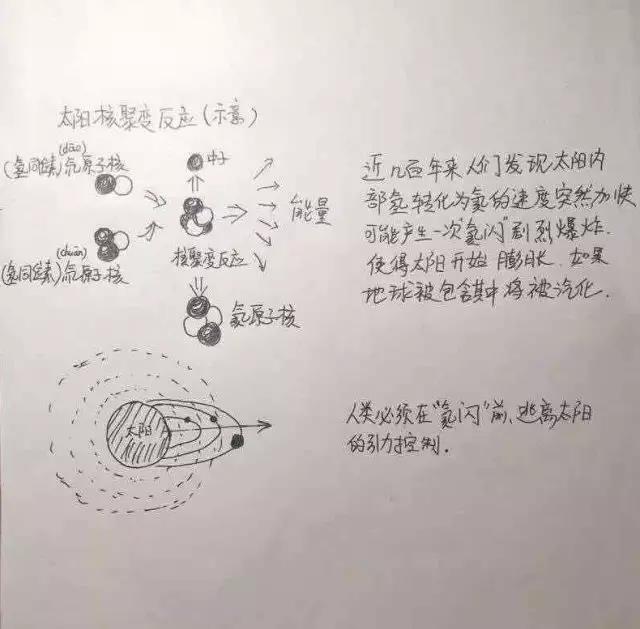 太阳核聚变反应(示意)
(氢同位素)氘(dāo)原子核
中子
能量
(氢同位素)氚(chuān)原子核
核聚变反应
氦原子核
近几百年来人们发现太阳内
部氢转化为氦的速度突然加快
可能产生一次"氦闪"剧烈爆炸.
使得太阳开始膨胀.如果
地球被包含其中将被汽化.
太阳
人类必须在"氦闪"前、逃离太阳
的引力控制.